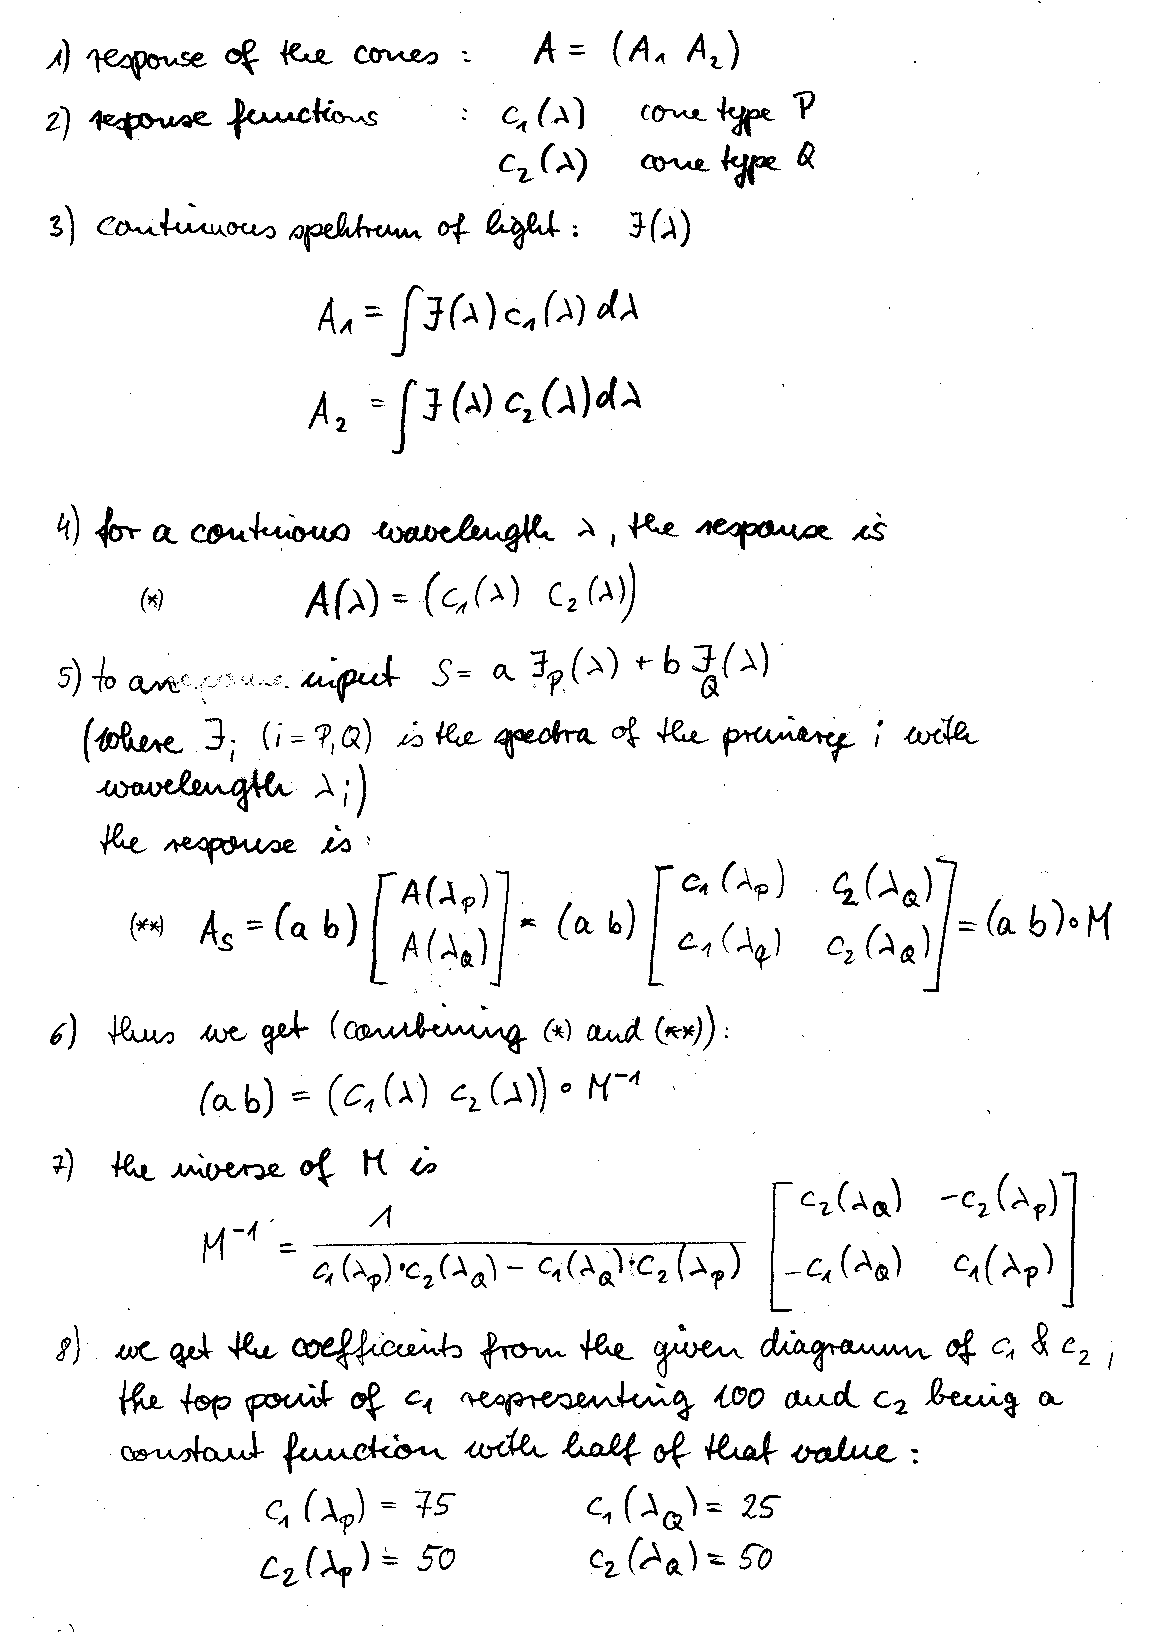 1) response of the cones : A = (A₁ A₂)
2) reponse functions : c₁(λ) cone type P
c₂(λ) cone type Q
3) continuous spektrum of light : J(λ)
A₁ = ∫ J(λ) c₁(λ) dλ
A₂ = ∫ J(λ) c₂(λ) dλ
4) for a contenious wavelength λ, the response is
(*) A(λ) = (c₁(λ) c₂(λ))
5) to an input S = a J_P(λ) + b J_Q(λ)
(where J_i (i = P,Q) is the spectra of the primary i with
wavelength λ_i)
the response is:
(**) A_S = (a b) [A(λ_P) ; A(λ_Q)] = (a b) [c₁(λ_P) c₂(λ_Q) ; c₁(λ_Q) c₂(λ_Q)] = (a b) ∘ M
6) thus we get (combining (*) and (**)) :
(a b) = (c₁(λ) c₂(λ)) ∘ M⁻¹
7) the inverse of M is
M⁻¹ = 1 / (c₁(λ_P)·c₂(λ_Q) − c₁(λ_Q)·c₂(λ_P)) [c₂(λ_Q) −c₂(λ_P) ; −c₁(λ_Q) c₁(λ_P)]
8) we get the coefficients from the given diagramm of c₁ & c₂,
the top point of c₁ respresenting 100 and c₂ being a
constant function with half of that value :
c₁(λ_P) = 75 c₁(λ_Q) = 25
c₂(λ_P) = 50 c₂(λ_Q) = 50